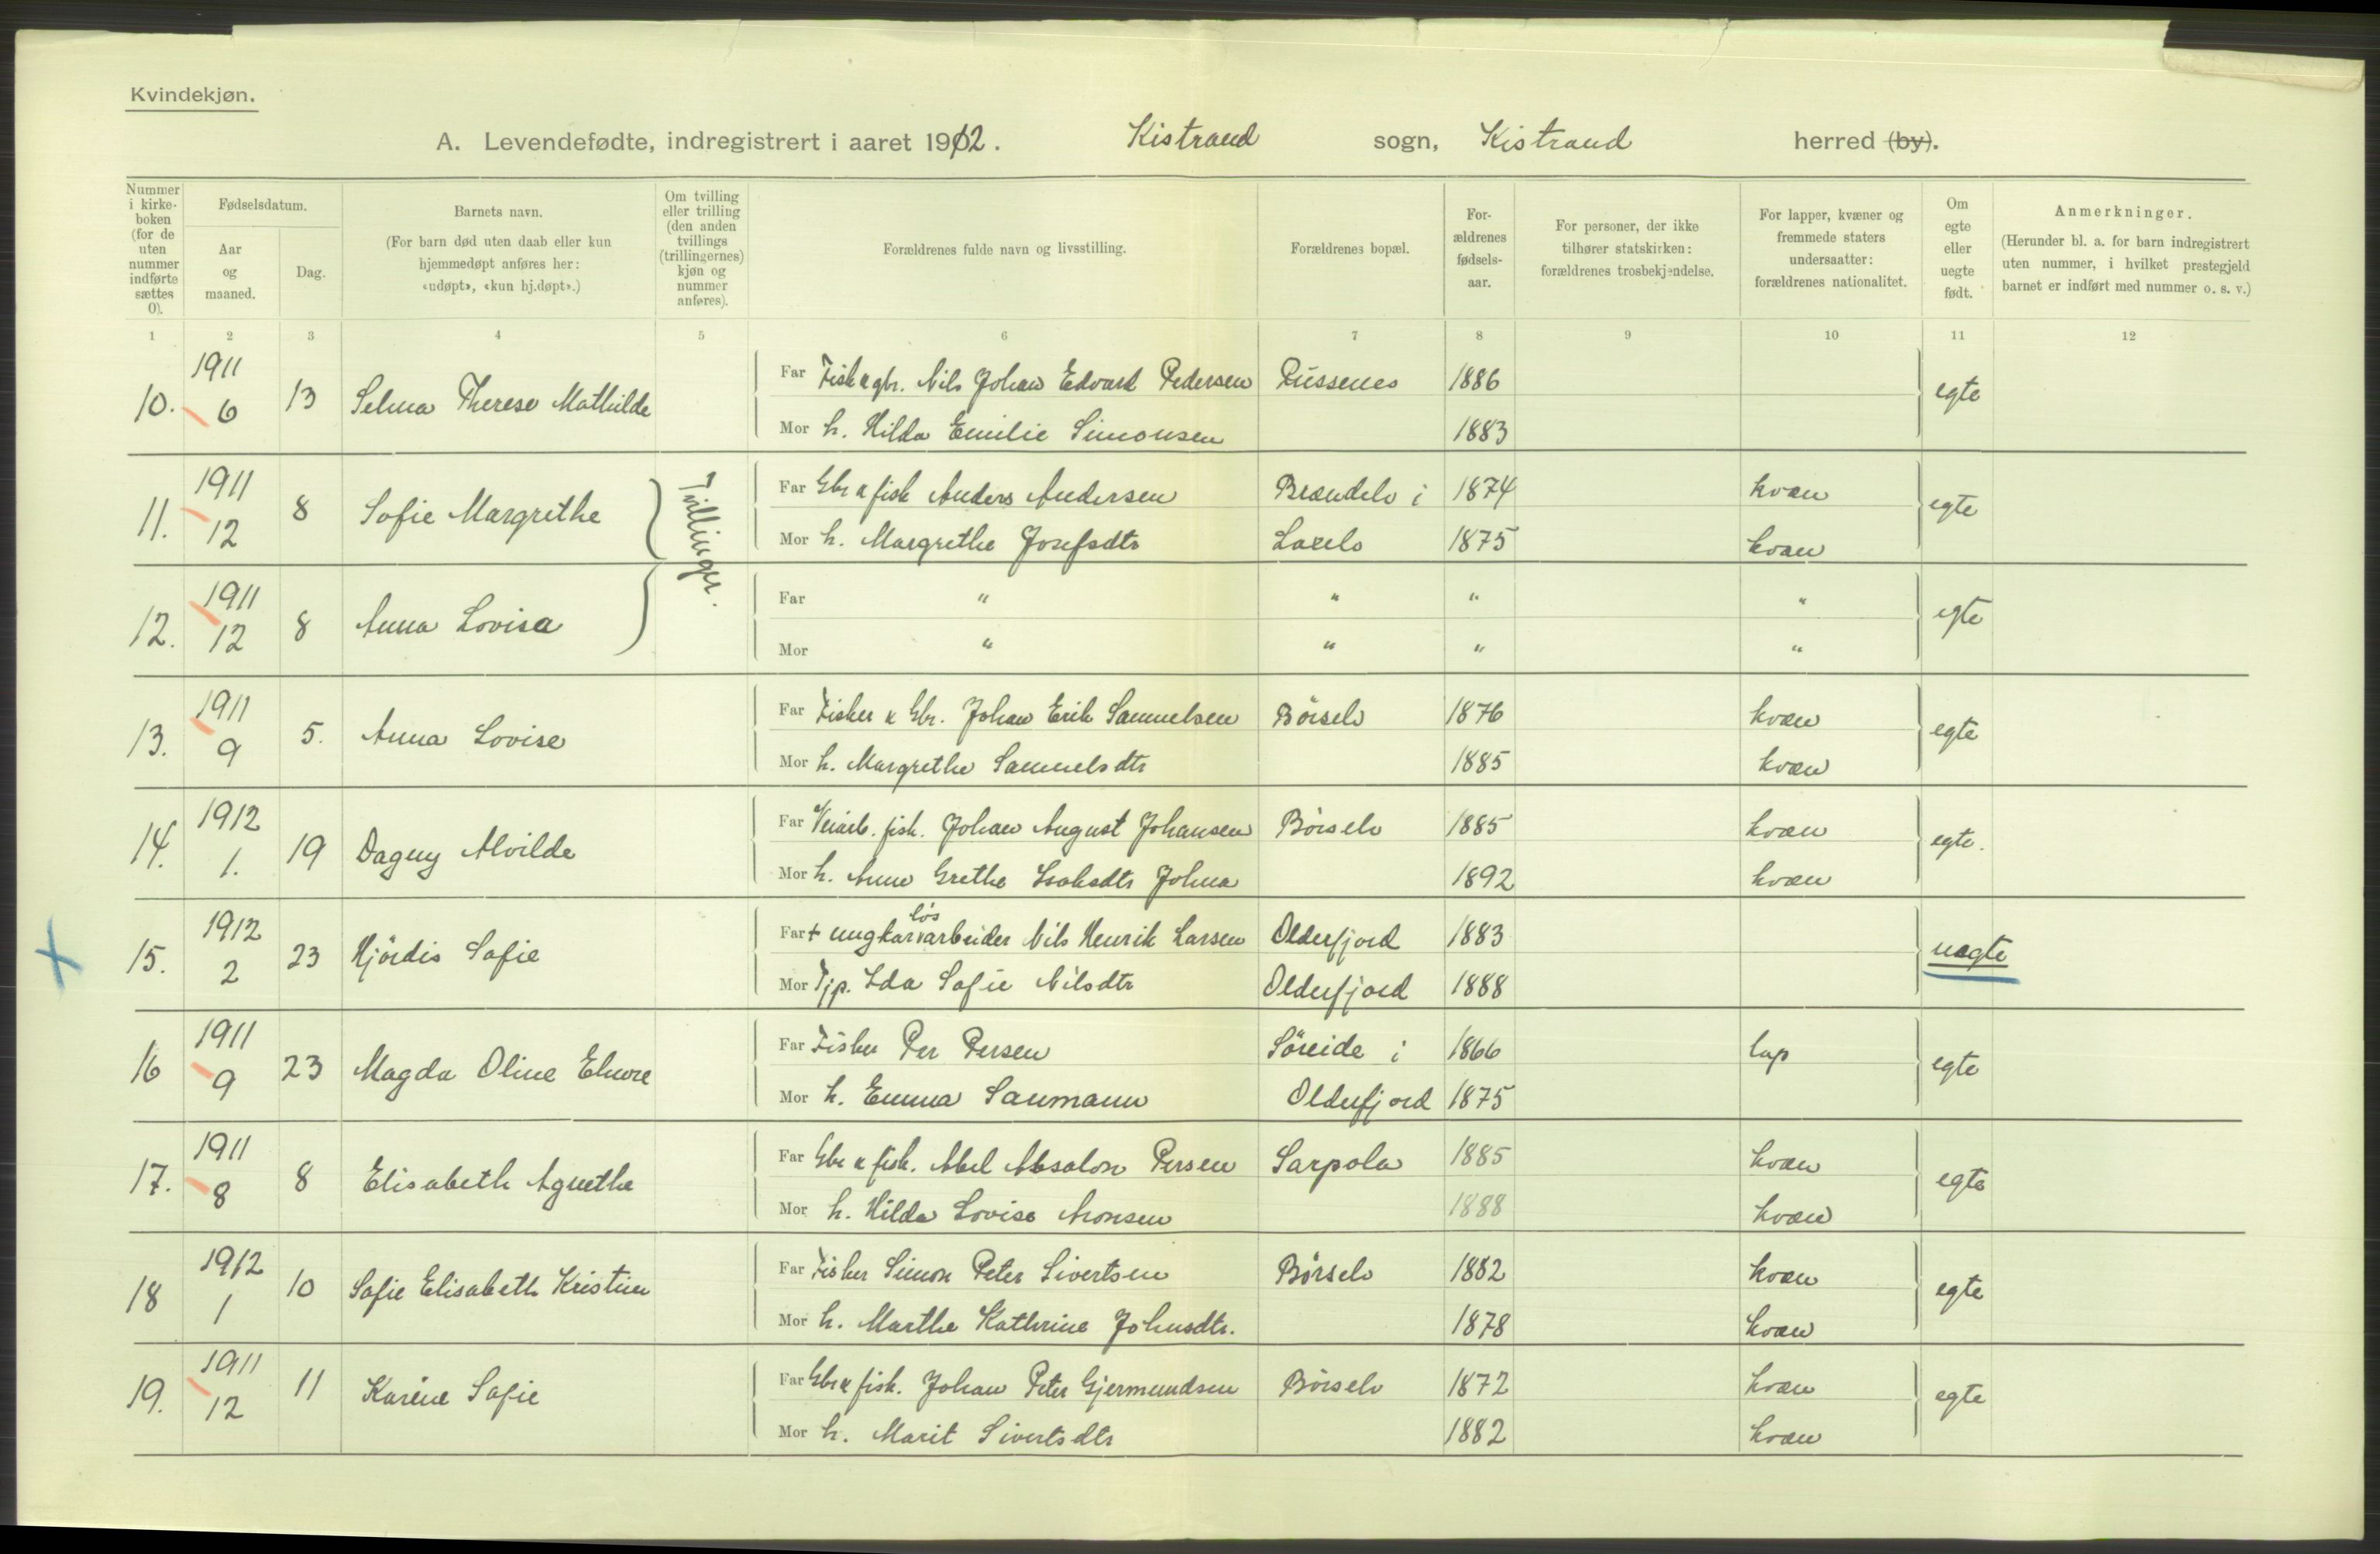 Kvindekjøn.
A. Levendefødte, indregistrert i aaret 1912. Kistrand sogn, Kistrand herred (by).
Nummer i kirke-boken (for de uten nummer indførte sættes 0).
Fødselsdatum.
Aar og maaned.
Dag.
Barnets navn.
(For barn død uten daab eller kun hjemmedøpt anføres her: «udøpt», «kun hj.døpt».)
Om tvilling eller trilling (den anden tvillings (trillingernes) kjøn og nummer anføres).
Forældrenes fulde navn og livsstilling.
Forældrenes bopæl.
For-ældrenes fødsels-aar.
For personer, der ikke tilhører statskirken: forældrenes trosbekjendelse.
For lapper, kvæner og fremmede staters undersaatter: forældrenes nationalitet.
Om egte eller uegte født.
Anmerkninger.
(Herunder bl. a. for barn indregistrert uten nummer, i hvilket prestegjeld barnet er indført med nummer o. s. v.)
1 2 3 4 5 6 7 8 9 10 11 12
10. 1911 6 13 Selma Therese Mathilde
Far Fisk & gbr. Nils Johan Edvard Pedersen Russenes 1886 egte
Mor h. Hilda Emilie Simonsen 1883
11. 1911 12 8 Sofie Margrethe Tvillinger.
Far Gbr & fisk Anders Andersen Brændelv i 1874 kvæn egte
Mor h. Margrethe Josefsdtr Laxelv 1875 kvæn
12. 1911 12 8 Anna Lovisa
Far " " " " egte
Mor " " " "
13. 1911 9 5. Anna Lovise
Far Fisker & Gbr. Johan Erik Samuelsen Börselv 1876 kvæn egte
Mor h. Margrethe Samuelsdtr 1885 kvæn
14. 1912 1. 19 Dagny Alvilde
Far Veiarb. fisk. Johan August Johansen Börselv 1885 kvæn egte.
Mor h. Anne Grethe Isaksdtr Johna 1892 kvæn
15. 1912 2 23 Hjördis Sofie
Far + ungkar løsarbeider Nils Henrik Larsen Olderfjord 1883 uegte
Mor Tjp. Ida Sofie Nilsdtr Olderfjord 1888
16 1911 9 23 Magda Oline Elvore
Far Fisker Per Persen Söreide i 1866 lap egte
Mor h. Emma Saumann Olderfjord 1875
17. 1911 8 8 Elisabeth Agnethe
Far Gbr & fisk. Abel Absalon Persen Sarpola 1885 kvæn egte
Mor h. Hilda Lovise Aronsen 1888 kvæn
18 1912 1 10 Sofie Elisabeth Kristine
Far Fisker Simon Peter Sivertsen Börselv 1882 kvæn egte
Mor h. Marthe Kathrine Johnsdtr. 1878 kvæn
19. 1911 12 11 Karine Sofie
Far Gbr & fisk. Johan Peter Gjermundsen Börselv 1872 kvæn egte
Mor h. Marit Sivertsdtr 1882 kvæn